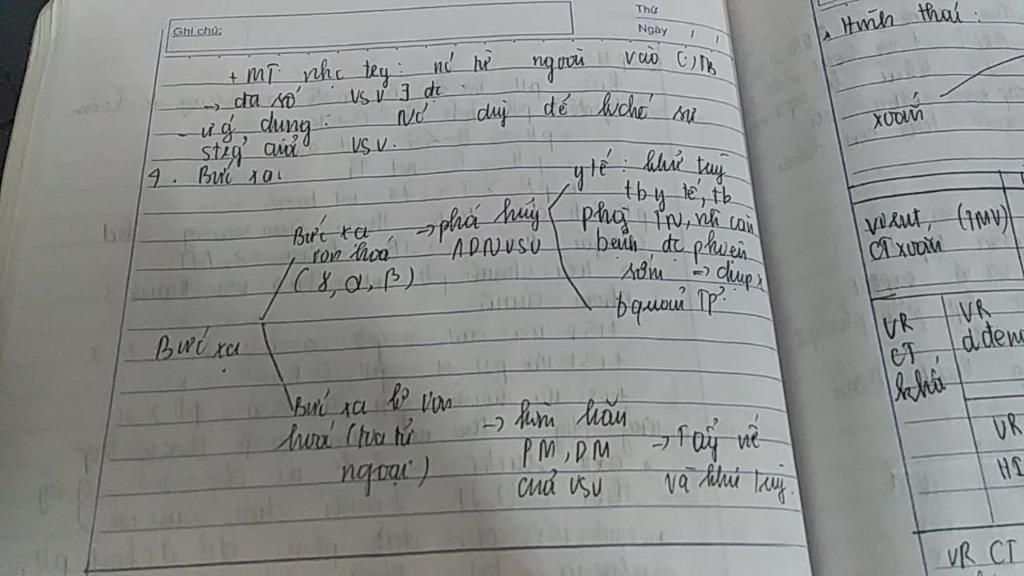 Ghi chú:
Thứ
Ngày / /
+ MT nhc tg: nc từ ngoài vào C, NB
→ đa số VSV ∃ đc
- ứ g, dụng: Nc duy để kchế sự
stzg của VSV.
4. Bức xạ
Bức xạ
Bức xạ
ion hoá
(γ, α, β)
→ phá hủy
ADN VSV
y tế: khử trùg
tb y tế, tb
phg TN,
bệnh đc
sớm → chụp x
bquản TP.
Bức xạ k ion
hoá (tia tử
ngoại)
→ kìm hãm
PM, DM
của VSV
→ Tẩy uế
và khử trùg.
Hình thái:
xoắn
virut, (TMV)
CT xoắn
VR
CT
khối
VR
d.đem
VR
HI
VR CT